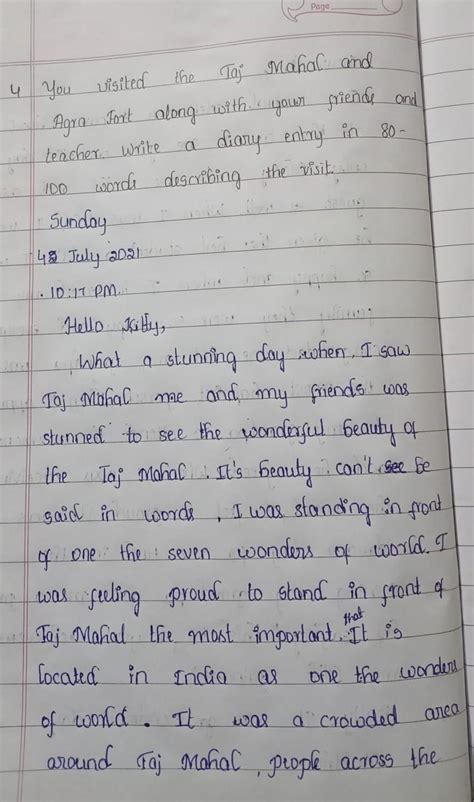 Page
4 You visited the Taj Mahal and
Agra Fort along with your friends and
teacher. Write a diary entry in 80-
100 words describing the visit.
Sunday
48 July 2021
10:17 PM.
Hello Kitty,
What a stunning day when, I saw
Taj Mahal me and, my friends was
stunned to see the wonderful beauty of
the Taj Mahal. It's beauty can't see be
said in words, I was standing in front
of one the seven wonders of world. I
was feeling proud to stand in front of
Taj Mahal the most important. that It is
located in India as one the wonders
of world. It was a crowded area
around Taj Mahal, people across the